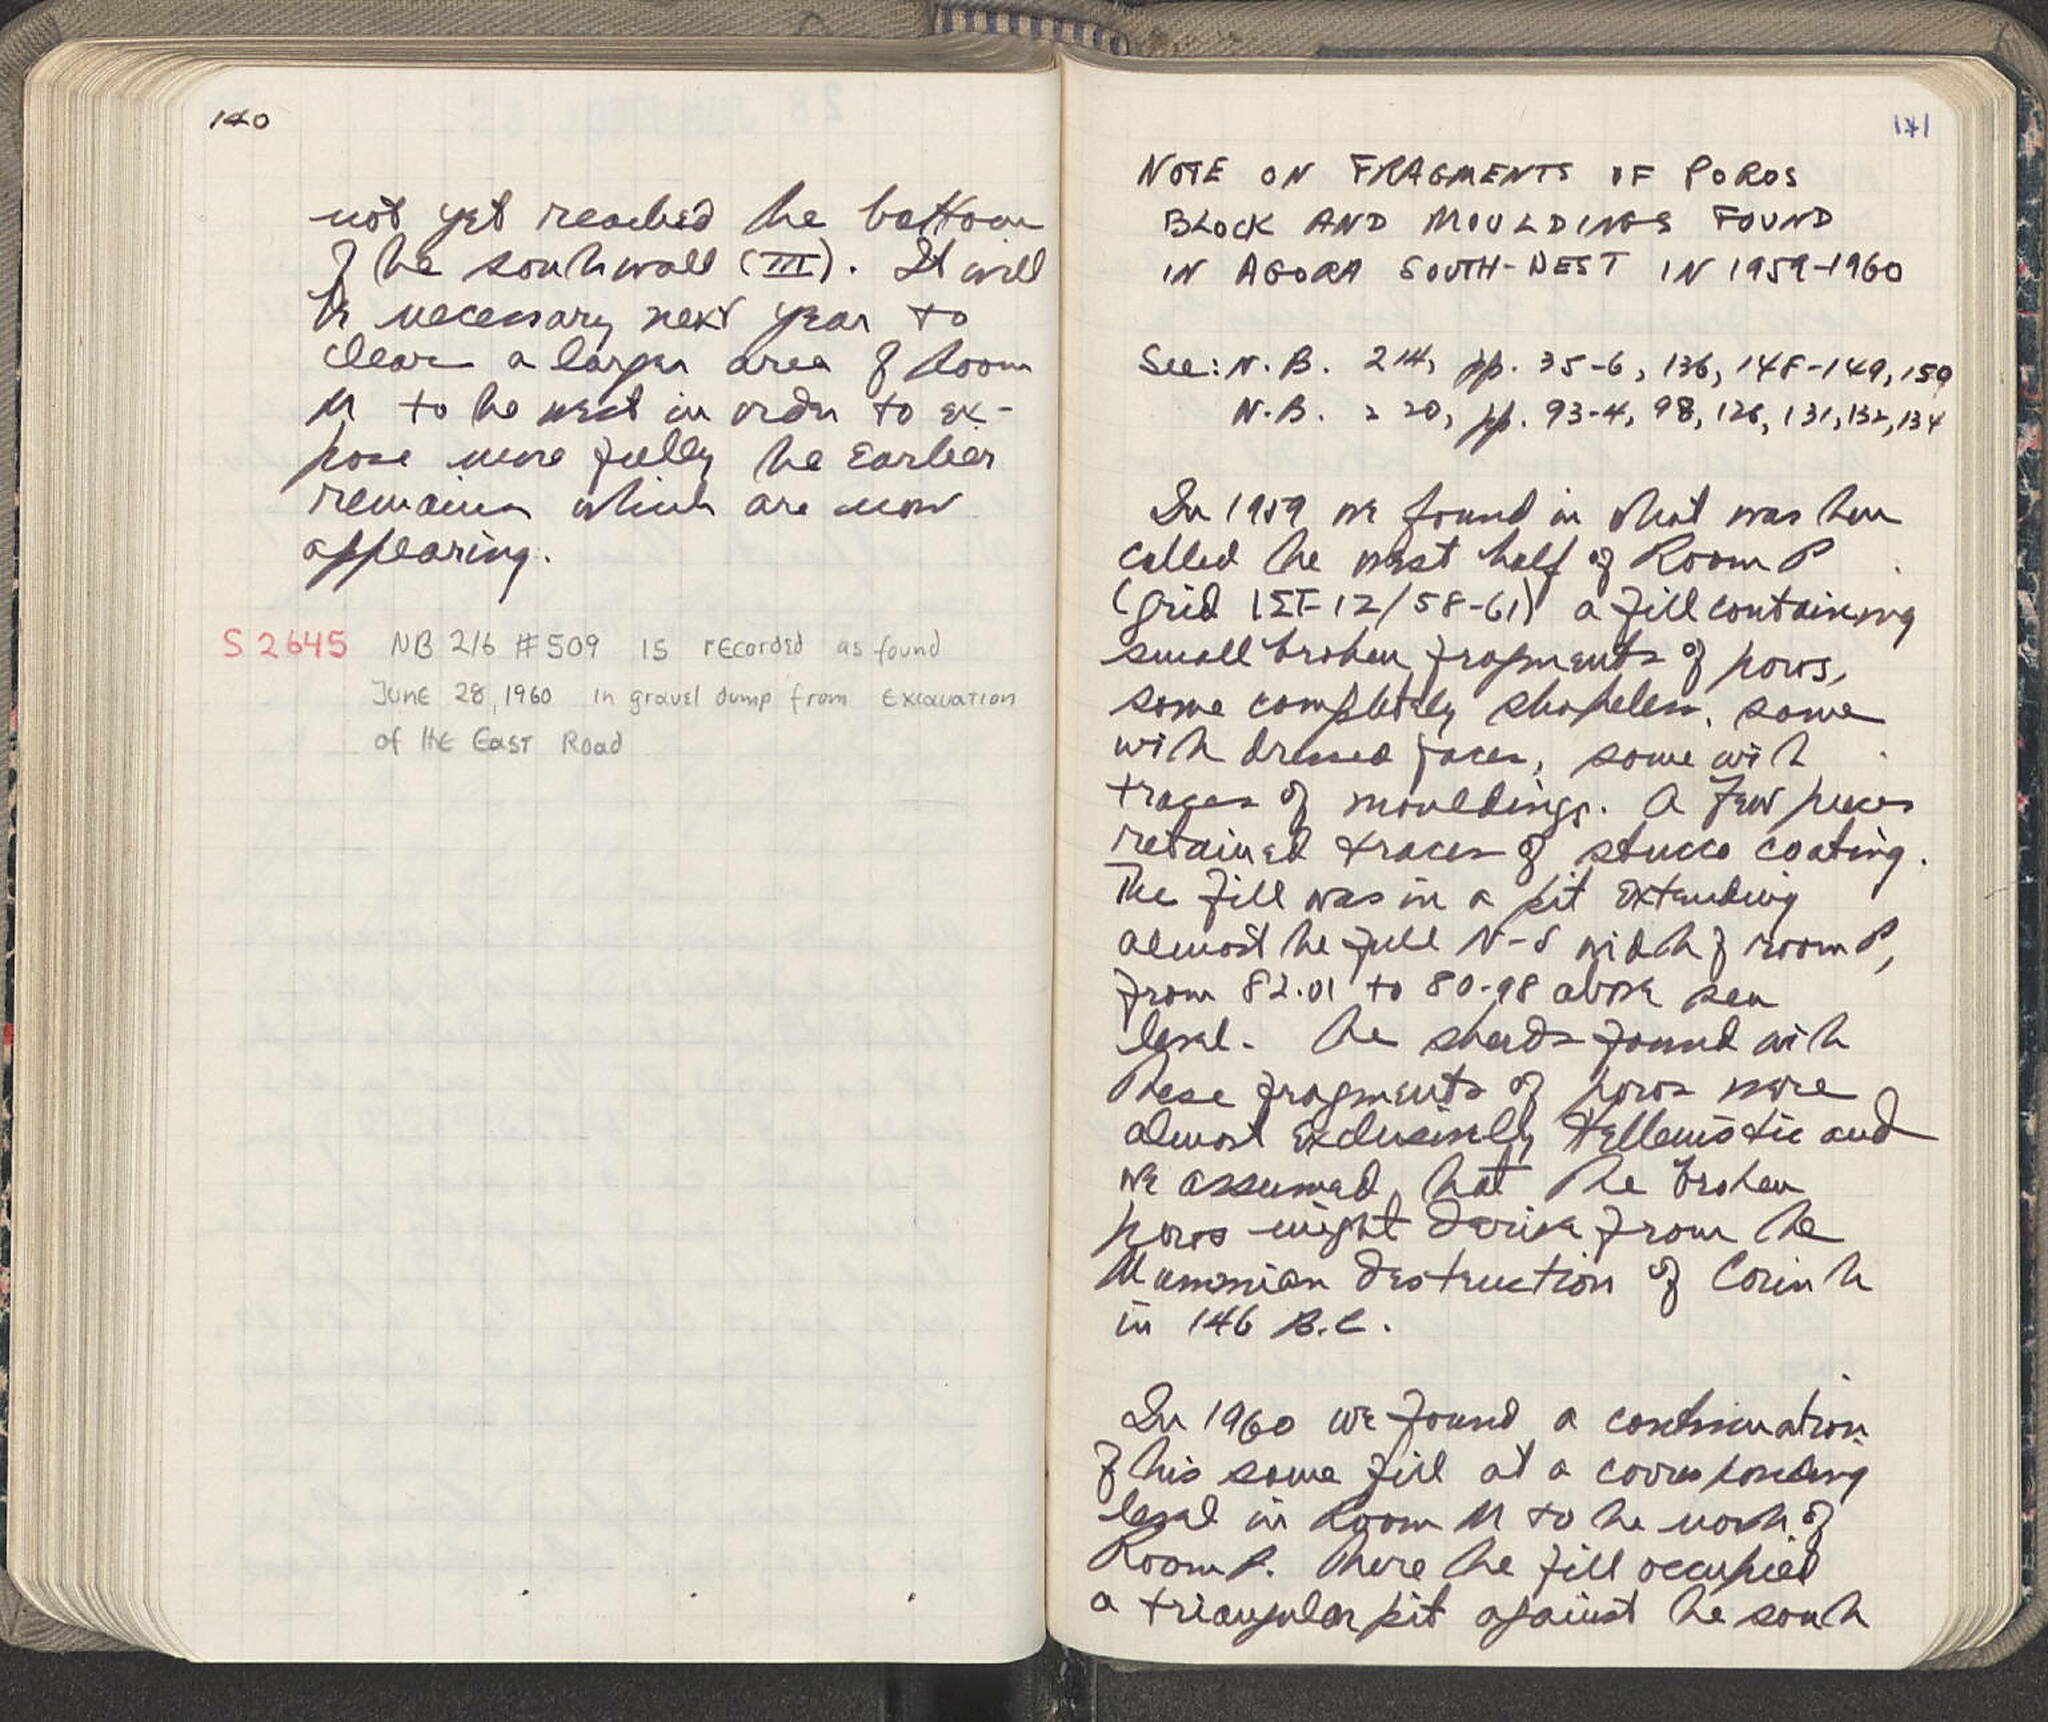 140
not yet reached the bottom
of the south wall (III). It will
be necessary next year to
clear a larger area of Room
M to the west in order to ex-
pose more fully the earlier
remains which are now
appearing.
S 2645 NB 216 #509 is recorded as found
June 28, 1960 in gravel dump from Excavation
of the East Road
141
NOTE ON FRAGMENTS OF POROS
BLOCK AND MOULDINGS FOUND
IN AGORA SOUTH-WEST IN 1959-1960
See: N.B. 214, pp. 35-6, 136, 148-149, 150
N.B. 220, pp. 93-4, 98, 126, 131, 132, 134
In 1959 we found in what was then
called the west half of Room P
(grid 12/58-61) a fill containing
small broken fragments of poros,
some completely shapeless, some
with dressed faces, some with
traces of mouldings. A few pieces
retained traces of stucco coating.
The fill was in a pit extending
almost the full N-S width of room P,
from 82.01 to 80.98 above sea
level. The sherds found with
these fragments of poros were
almost exclusively Hellenistic and
we assumed that the broken
poros might derive from the
Mummian destruction of Corinth
in 146 B.C.
In 1960 we found a continuation
of this same fill at a corresponding
level in Room M to the north of
Room P. There the fill occupied
a triangular pit against the south